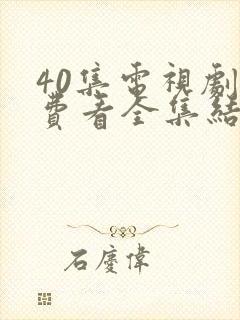 40集電視劇
費看全集結
石慶偉